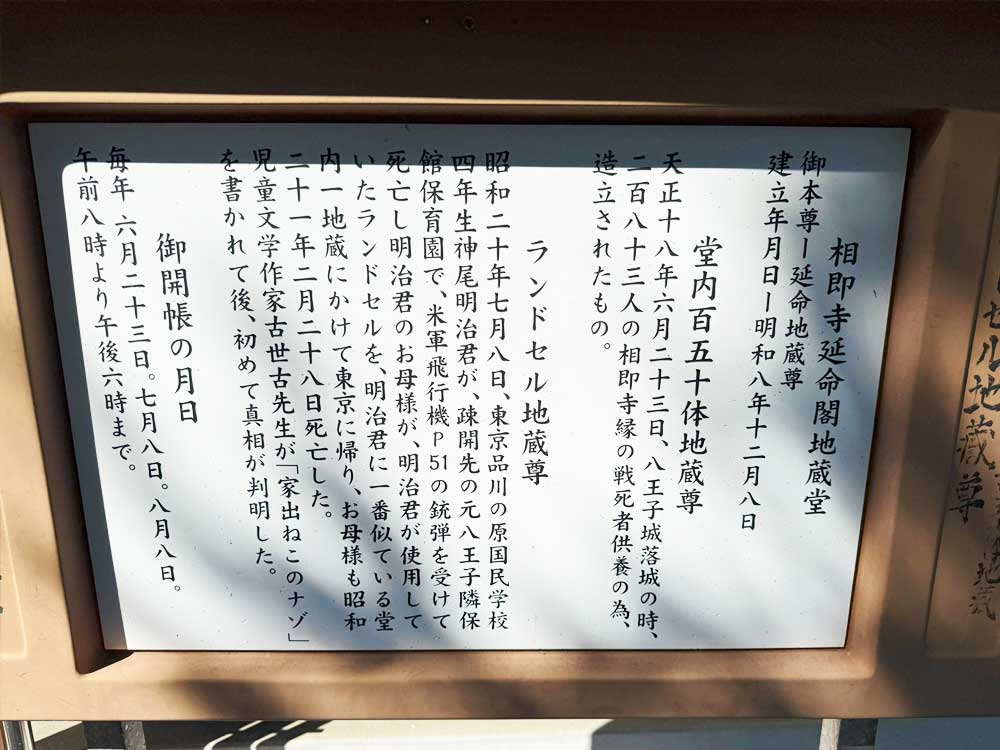 相即寺延命閣地蔵堂
御本尊ー延命地蔵尊
建立年月日ー明和八年十二月八日
堂内百五十体地蔵尊
天正十八年六月二十三日、八王子城落城の時、
二百八十三人の相即寺縁の戦死者供養の為、
造立されたもの。
ランドセル地蔵尊
昭和二十年七月八日、東京品川の原国民学校
四年生神尾明治君が、疎開先の元八王子隣保
館保育園で、米軍飛行機P51の銃弾を受けて
死亡し明治君のお母様が、明治君が使用して
いたランドセルを、明治君に一番似ている堂
内一地蔵にかけて東京に帰り、お母様も昭和
二十一年二月二十八日死亡した。
児童文学作家古世古先生が「家出ねこのナゾ」
を書かれて後、初めて真相が判明した。
御開帳の月日
毎年 六月二十三日。七月八日。八月八日。
午前八時より午後六時まで。
セル地蔵尊